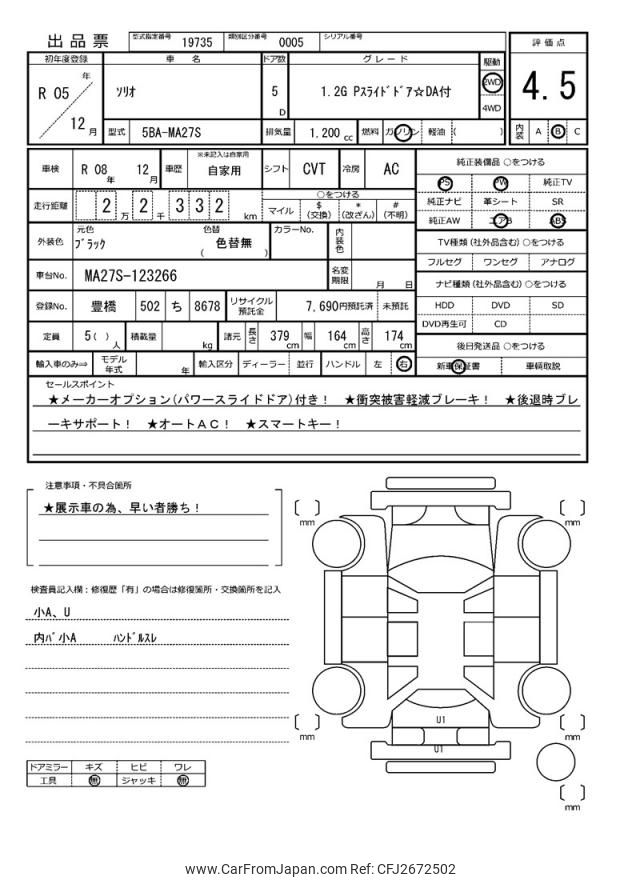 出品票 型式指定番号 19735 類別区分番号 0005 シリアル番号
初年度登録 車 名 ドア数 グレード 駆動 評価点
R 05 年 12 月 ソリオ 5 D 1.2G Pスライドドア☆DA付 2WD 4WD 4.5
型式 5BA-MA27S 排気量 1.200 cc 燃料 ガソリン 軽油 ( ) 内装 A B C
車検 R 08 年 12 月 車歴 ※未記入は自家用 自家用 シフト CVT 冷房 AC
純正装備品 ○をつける
PS PW 純正TV
純正ナビ 革シート SR
純正AW エアB ABS
走行距離 2 万 2 千 3 3 2 km ○をつける
マイル $ (交換) * (改ざん) # (不明)
外装色 元色 ブラック 色替 色替無 ( ) カラーNo. 内装色
TV種類 (社外品含む) ○をつける
フルセグ ワンセグ アナログ
車台No. MA27S-123266 名変期限 月 日
ナビ種類 (社外品含む) ○をつける
HDD DVD SD
DVD再生可 CD
登録No. 豊橋 502 ち 8678 リサイクル預託金 7,690円預託済 未預託
定員 5( ) 人 積載量 kg 諸元 長さ 379 cm 幅 164 cm 高さ 174 cm
後日発送品 ○をつける
新車保証書 車輌取説
輸入車のみ⇒ モデル年式 年 輸入区分 ディーラー 並行 ハンドル 左 右
セールスポイント
★メーカーオプション(パワースライドドア)付き! ★衝突被害軽減ブレーキ! ★後退時ブレ
ーキサポート! ★オートAC! ★スマートキー!
注意事項・不具合箇所
★展示車の為、早い者勝ち!
検査員記入欄：修復歴「有」の場合は修復箇所・交換箇所を記入
小A、U
内バ小A ハンドルスレ
mm
mm
U1
U1
mm
mm
mm
ドアミラー キズ ヒビ ワレ
工具 無 ジャッキ 無
www.CarFromJapan.com Ref: CFJ2672502